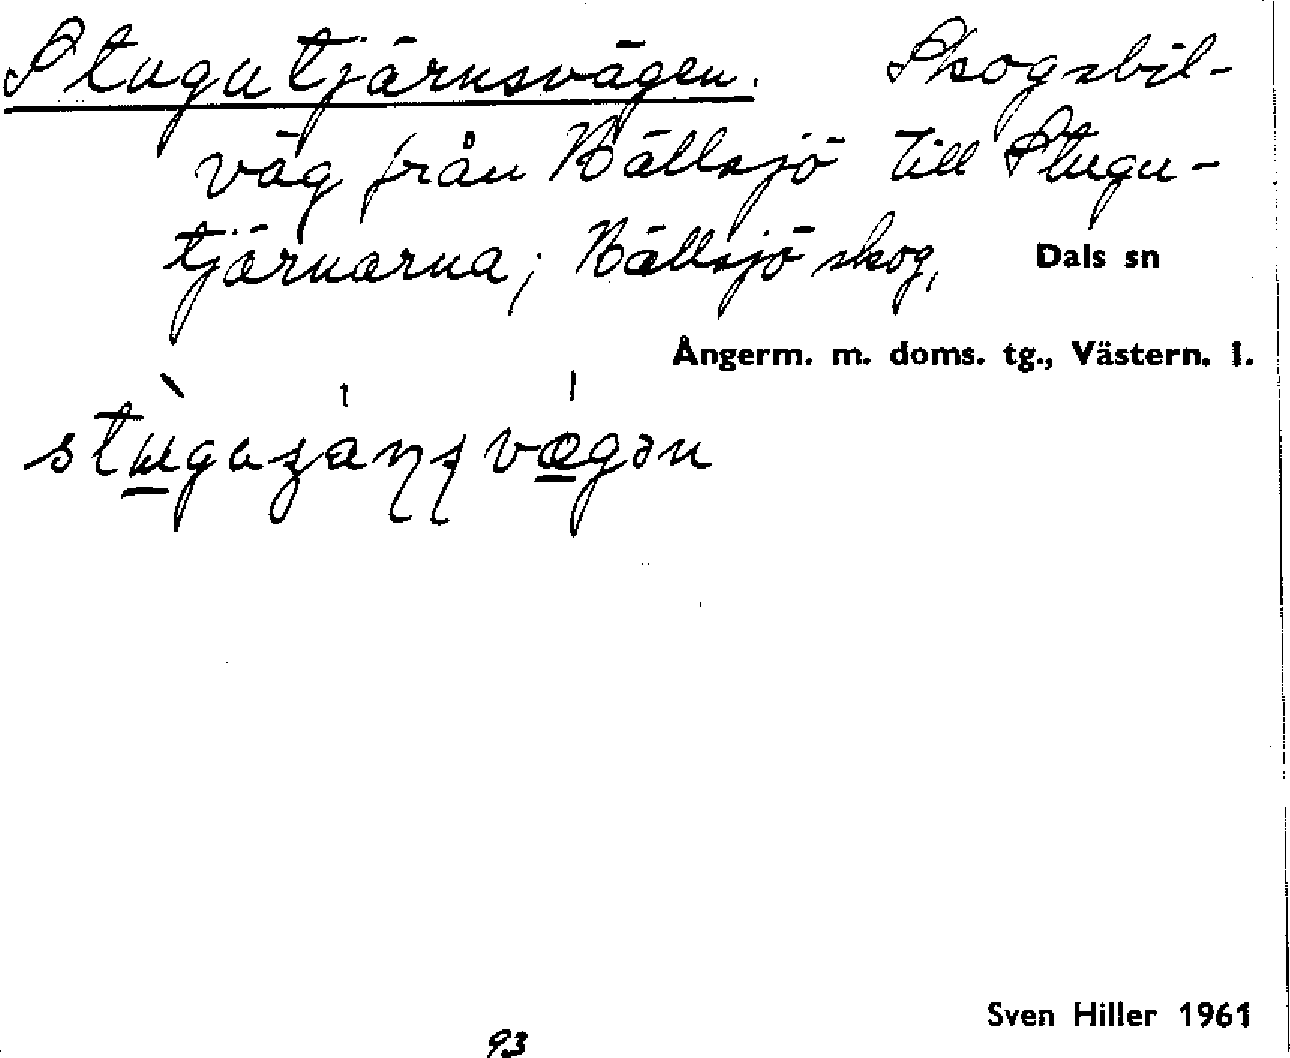 Stugutjärnsvägen. Skogsbil-
väg från Bällsjö till Stugu-
tjärnarna; Bällsjö skog, Dals sn
Ångerm. m. doms. tg., Västern. l.
Sven Hiller 1961
93